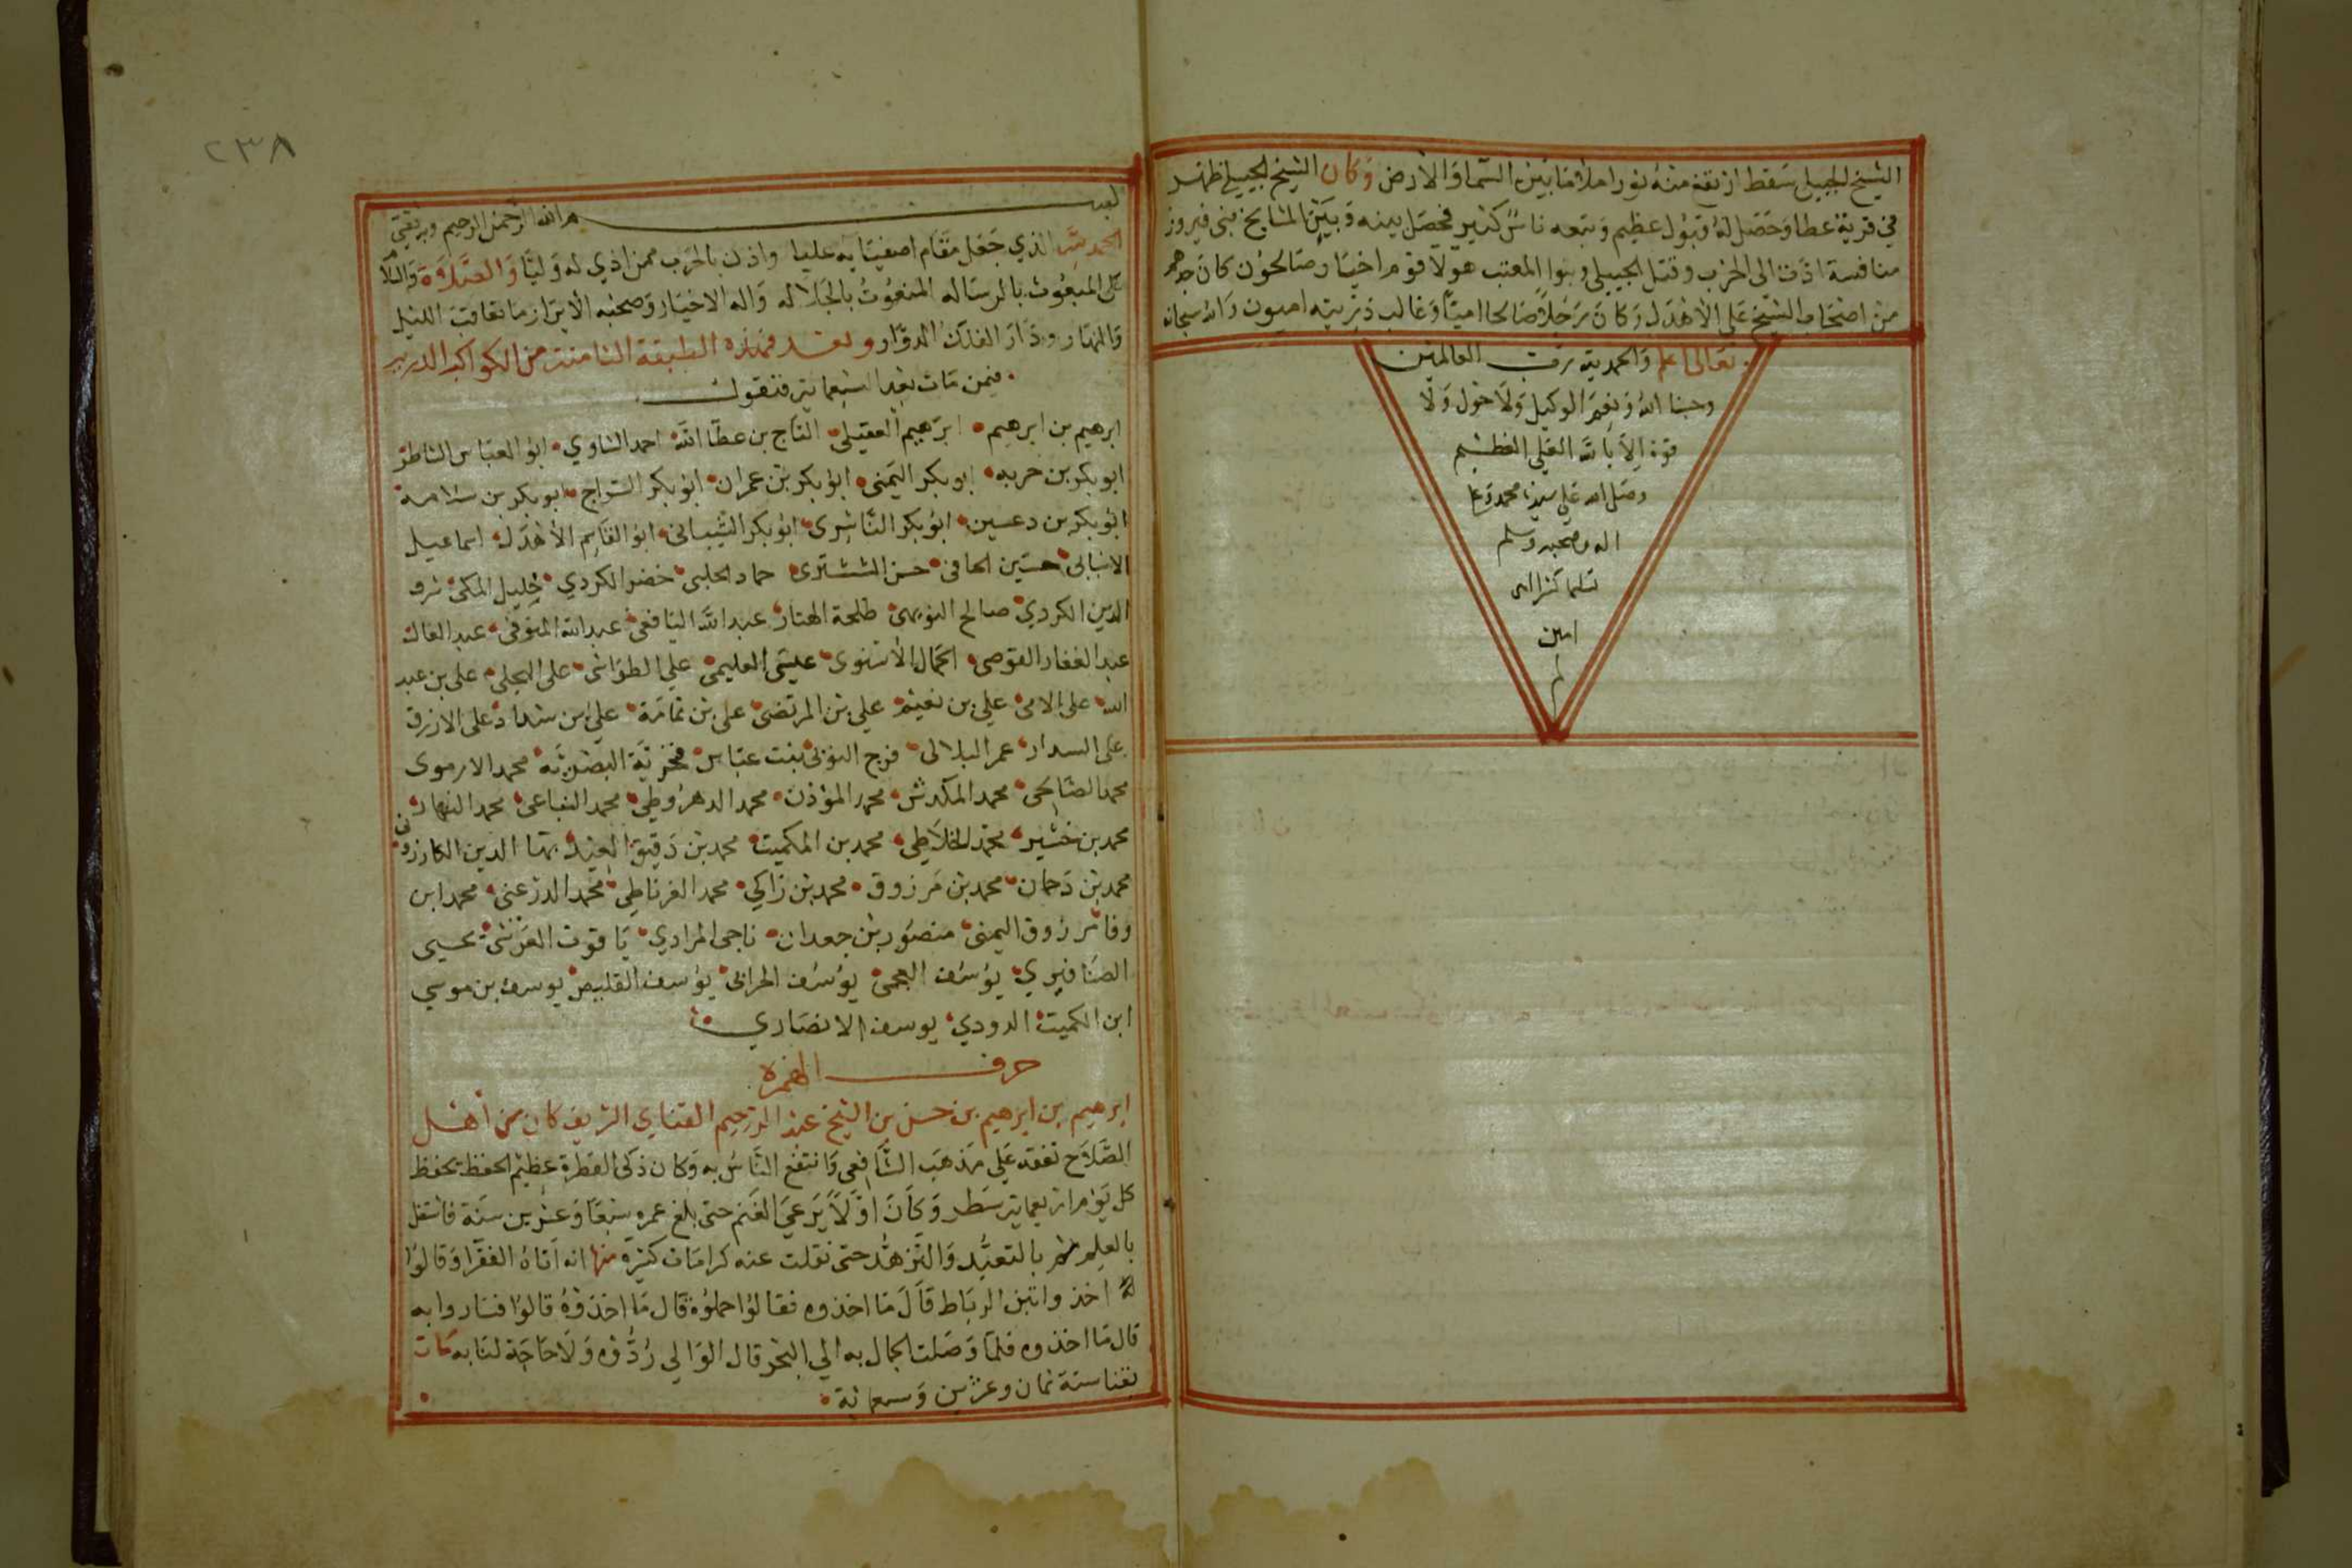 الشيخ الجبيلي سقط اربعة منه نورا ملا ما بين السما والارض وكان الشيخ الجبيلي ظهر
في قرية عطا وحصل له قبول عظيم وتبعه ناس كثير فحصل بينه وبين المشايخ بني فيروز
منافسة ادت الى الحرب وقتل الجبيلي وبنوا المعتب هولا قوم اخيار صالحون كان جدهم
من اصحاب الشيخ على الاهدل وكان رجلا صالحا اميا وغالب ذريته اميون والله سبحانه
تعالى اعلم والحمد لله رب العالمين
وحسبنا الله ونعم الوكيل ولا حول ولا
قوة الا بالله العلي العظيم
وصلى الله على سيدنا محمد وعلى
اله وصحبه وسلم
تسليما كثيرا
امين
٢٣٨
بسم الله الرحمن الرحيم وبه ثقتي
الحمد لله الذي جعل مقام اصفيايه عليا واذن بالحرب ممن اذي له وليا والصلاة والسلام
على المبعوث بالرساله المنعوت بالجلاله واله الاخيار وصحبه الابرار ما تعاقب الليل
والنهار ودار الفلك الدوار وبعد فهذه الطبقة الثامنة من الكواكب الدريه
فيمن مات بعد السبعماية فنقول
ابرهيم بن ابرهيم ابرهيم العقيلي التاج بن عطا الله احمد الشاوي ابو العباس الشاطر
ابو بكر بن حربه ابو بكر اليمني ابو بكر بن عمران ابو بكر السراج ابو بكر بن سلامه
ابو بكر بن دعسين ابو بكر الناشري ابو بكر الشيباني ابو القاسم الاهدل اسماعيل
الانبابي حسين الحافي حسن الششتري حماد الحلبي خضر الكردي خليل المكي شرف
الدين الكردي صالح طلحة الهتار عبد الله اليافعي عبد الله المنوفي عبد العال
عبد الغفار القوصي الجمال الاسنوي عيسى العليمي علي الطواشي على البجلي علي بن عبد
الله على الامي علي بن نعيم علي بن المرتضى على بن ثمامة علي بن شداد على الازرق
على السدار عمر البلالي فرج النوبي بنت عباس فخرية البصرية محمد الارموي
محمد الصالحي محمد المكدش محمد المؤذن محمد الدهروطي محمد النباعي محمد النهاري
محمد بن خشير محمد الخلاطي محمد بن الكميت محمد بن دقيق العيد بها الدين الكازروني
محمد بن دحمان محمد بن مرزوق محمد بن زاكي محمد الغرناطي محمد الدرعني محمد ابن
وفا مرزوق اليمني منصور بن جعدان ناجي المرادي ياقوت العرشي يحيى
الصنافيري يوسف العجمي يوسف الحراني يوسف القليصي يوسف بن موسى
ابن الكميت الدودي يوسف الانصاري
حرف الهمزة
ابرهيم بن ابرهيم بن حسن بن الشيخ عبد الرحيم القناي الشريف كان من اهل
الصلاح تفقه على مذهب الشافعي وانتفع الناس به وكان ذكى الفطرة عظيم الحفظ يحفظ
كل يوم اربعماية سطر وكان اولا يرعى الغنم حتى بلغ عمره سبعا وعشرين سنة فاشتغل
بالعلم ثم بالتعبد والتزهد حتى نقلت عنه كرامات كثيرة منها انه اتاه الفقرا وقالوا
له اخذوا تبن الرباط قال ما اخذوه فقالوا حملوه قال ما اخذوه قالوا فساروا به
قال ما اخذوه فلما وصلت الجمال به الي البحر قال الوالي ردوه ولا حاجة لنا به مات
بقنا سنة ثمان وعشرين وسبعماية